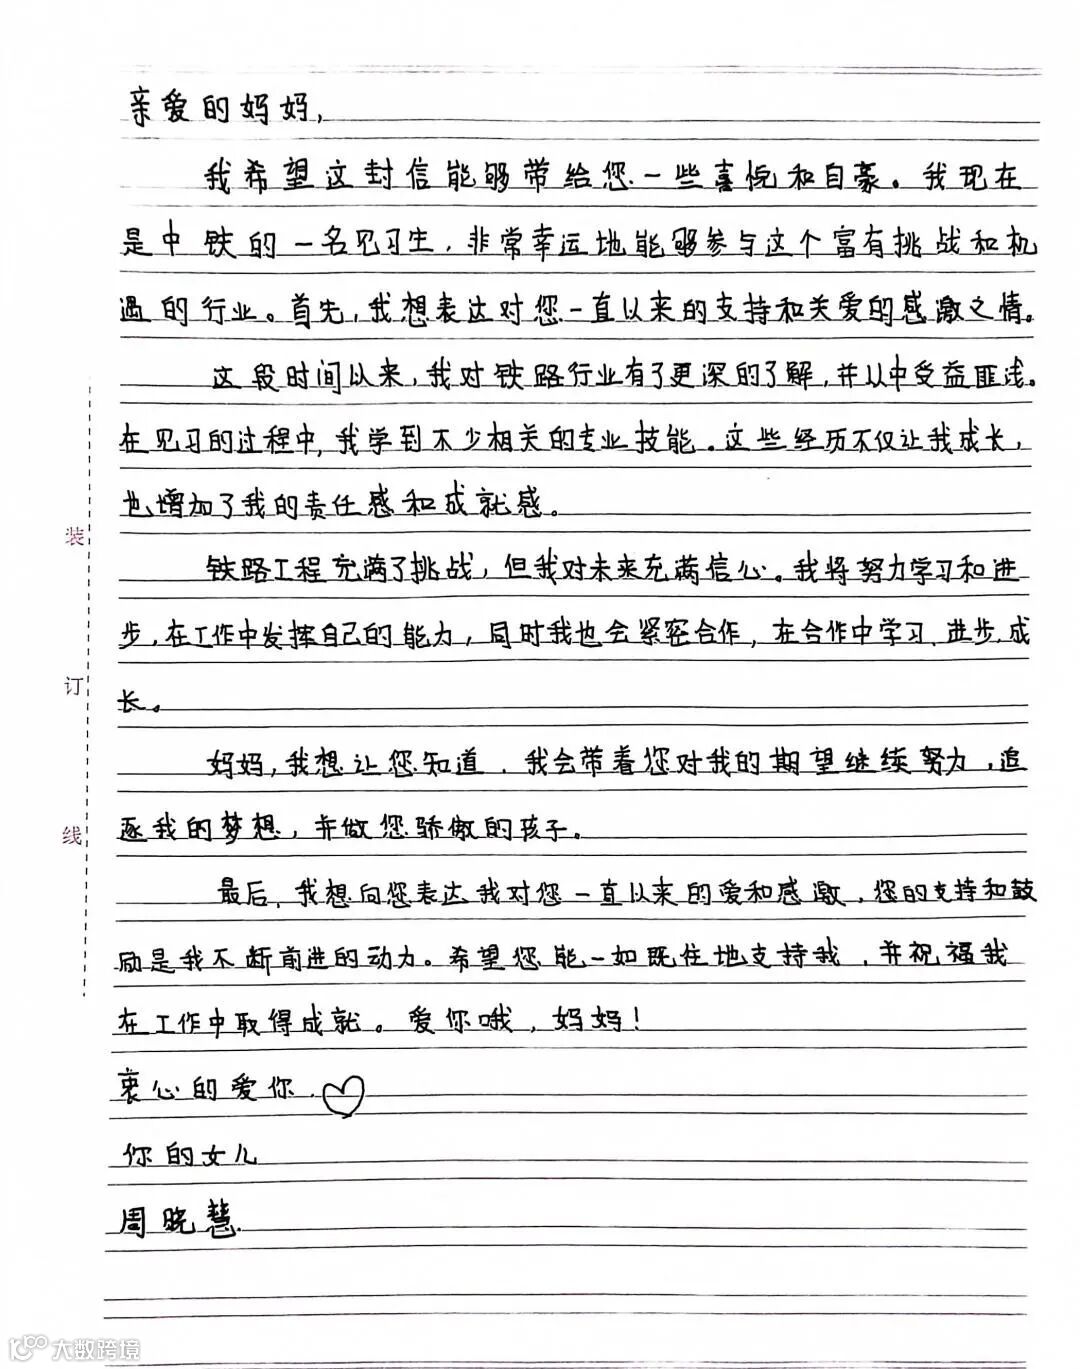 亲爱的妈妈,
我希望这封信能够带给您一些喜悦和自豪。我现在
是中铁的一名见习生,非常幸运地能够参与这个富有挑战和机
遇的行业。首先,我想表达对您一直以来的支持和关爱的感激之情。
这段时间以来,我对铁路行业有了更深的了解,并从中受益匪浅。
在见习的过程中,我学到不少相关的专业技能。这些经历不仅让我成长,
也增加了我的责任感和成就感。
铁路工程充满了挑战,但我对未来充满信心。我将努力学习和进
步,在工作中发挥自己的能力,同时我也会紧密合作,在合作中学习、进步、成
长。
妈妈,我想让您知道,我会带着您对我的期望继续努力,追
逐我的梦想,并做您骄傲的孩子。
最后,我想向您表达我对您一直以来的爱和感激,您的支持和鼓
励是我不断前进的动力。希望您能一如既往地支持我,并祝福我
在工作中取得成就。爱你哦,妈妈!
衷心的爱你.
你的女儿
周晓慧.
装
订
线
大数跨境